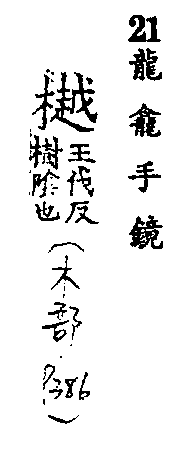 21龍龕手鏡
樾王伐反
樹陰也(木部.P386)